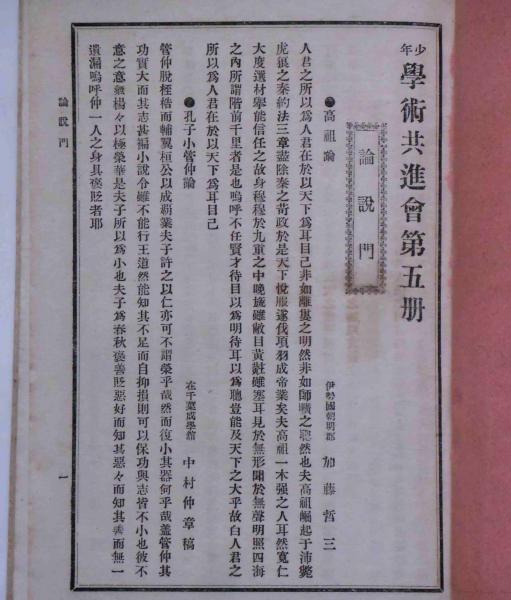 少年學術共進會第五册
論說門
●高祖論
伊勢國朝明郡 加藤哲三
人君之所以爲人君在於以天下爲耳目己非如離婁之明然非如師曠之聰然也夫高祖崛起于沛斃
虎狼之秦約法三章盡除秦之苛政於是天下悅服遂伐項羽成帝業矣夫高祖一木强之人耳然寬仁
大度選材擧能信任之故身穆穆於九重之中晚旒雖敝目黃黈雖塞耳見於無形聞於無聲明照四海
之內所謂階前千里者是也嗚呼不任賢才待目以爲明待耳以爲聰豈能及天下之大乎故白人君之
所以爲人君在於以天下爲耳目己
●孔子小管仲論
在千葉成學館 中村仲章稿
管仲脫桎梏而輔翼桓公以成覇業夫子許之以仁亦可不謂榮乎哉然而復小其器何乎哉蓋管仲其
功實大而其志甚褊小說令雖不能行王道然能知其不足而自抑損則可以保功與志皆不小也彼不
意之意氣楊々以極榮華是夫子所以爲小也夫子爲春秋褒善貶惡好而知其惡々而知其善而無一
遺漏嗚呼仲一人之身具褒貶者耶
論說門
一